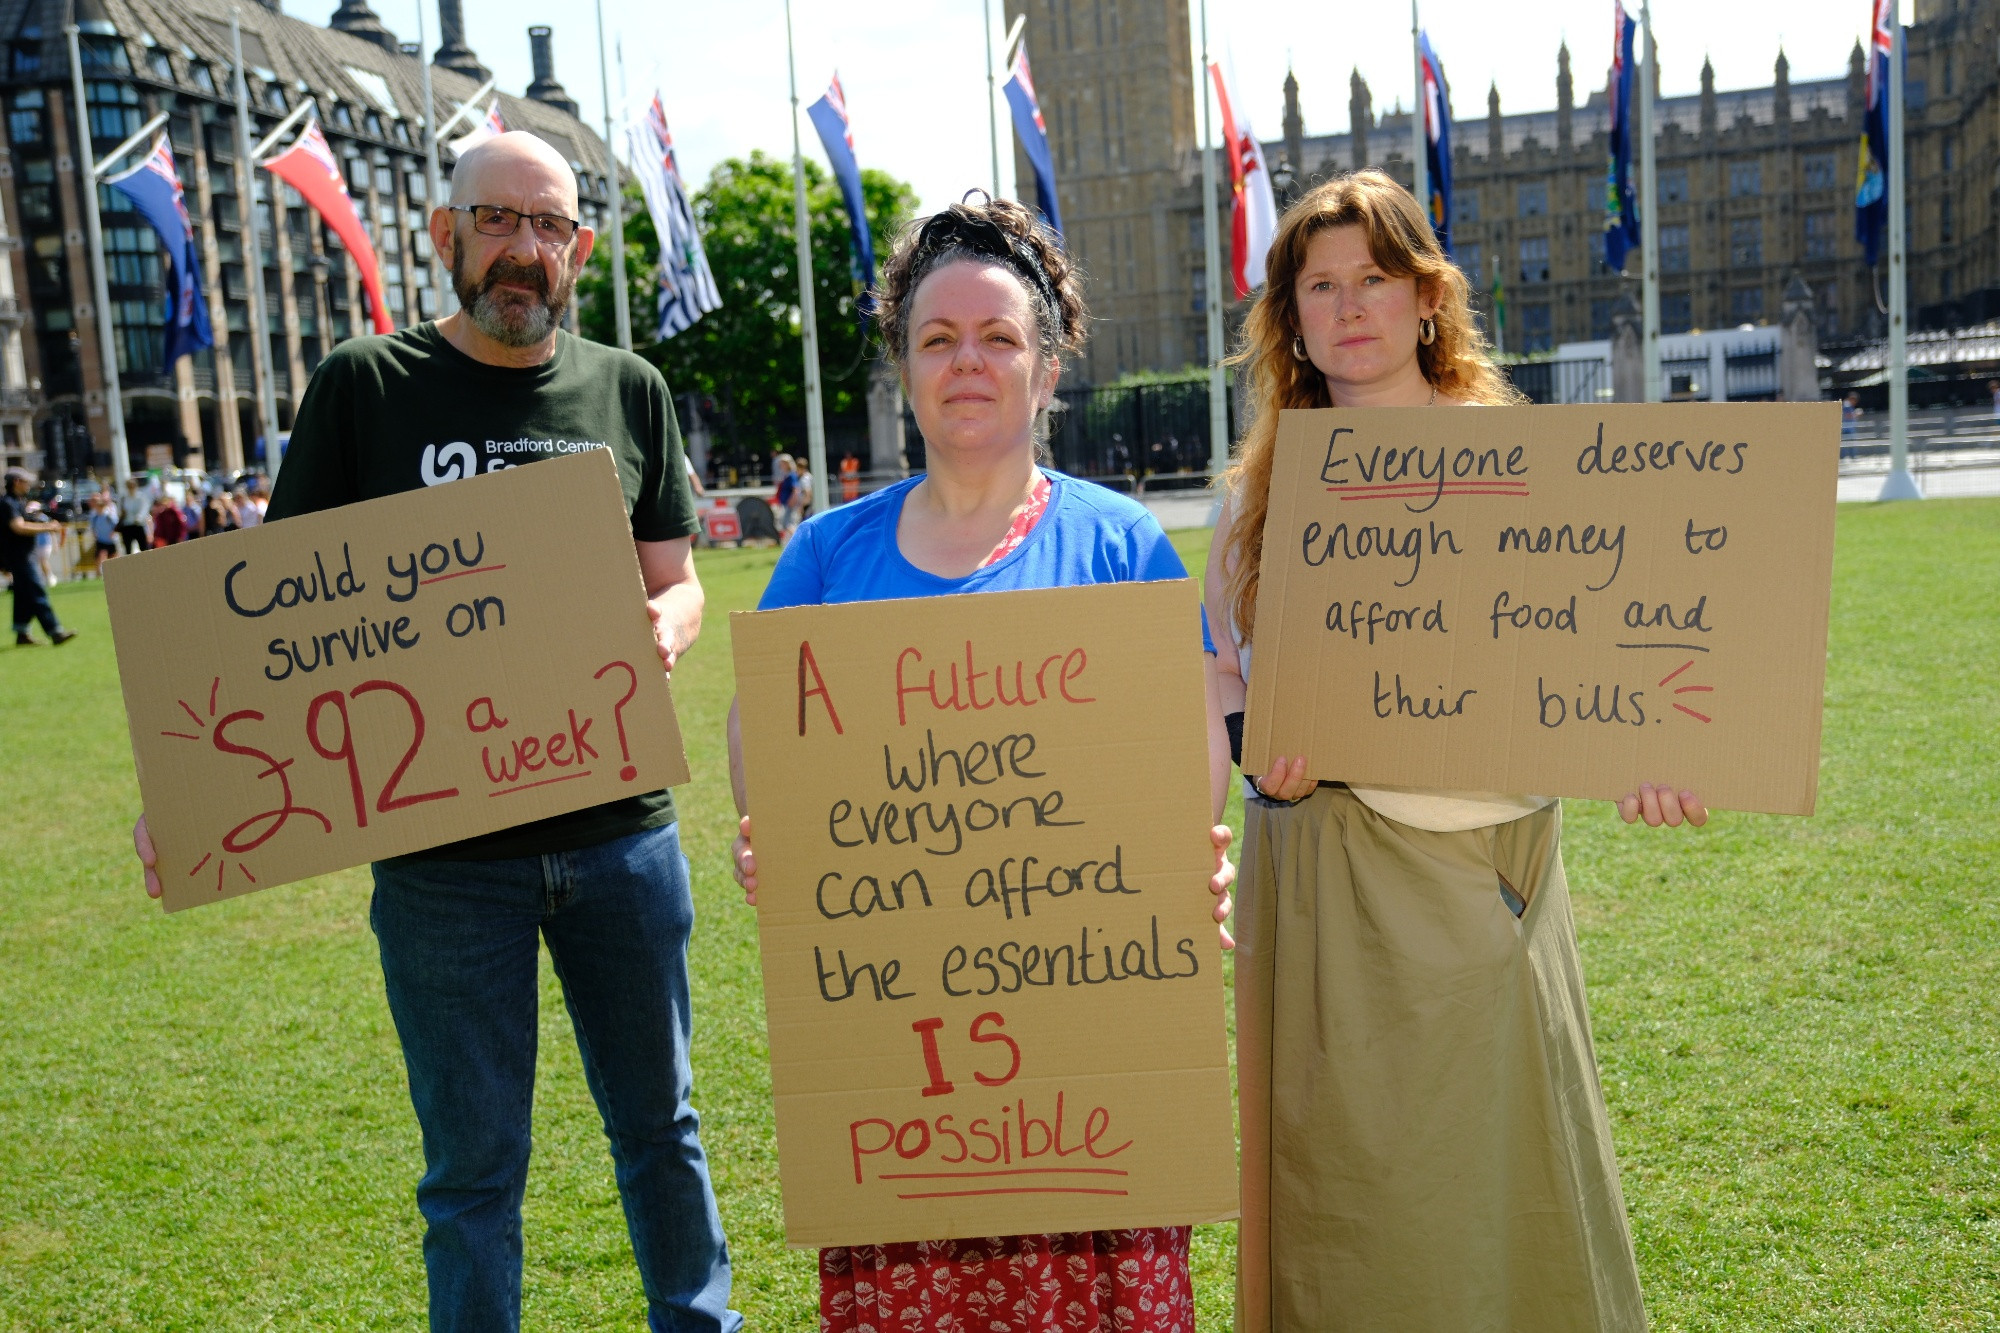 Bradford Central
Could you
survive on
£92 a
week?
A future
where
everyone
can afford
the essentials
IS
possible
Everyone deserves
enough money to
afford food and
their bills.